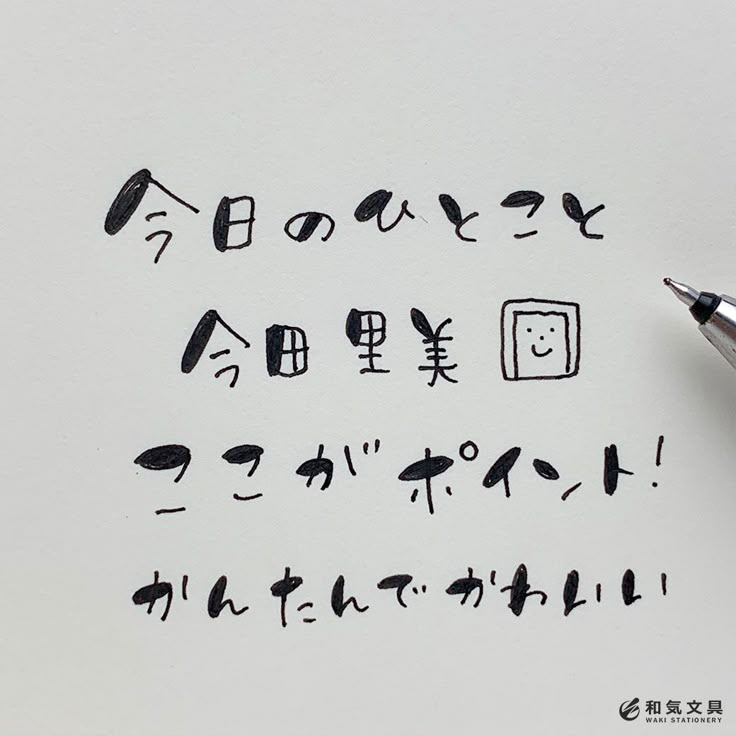 今日のひとこと
今田里美
ここがポイント!
かんたんでかわいい
和気文具
WAKI STATIONERY